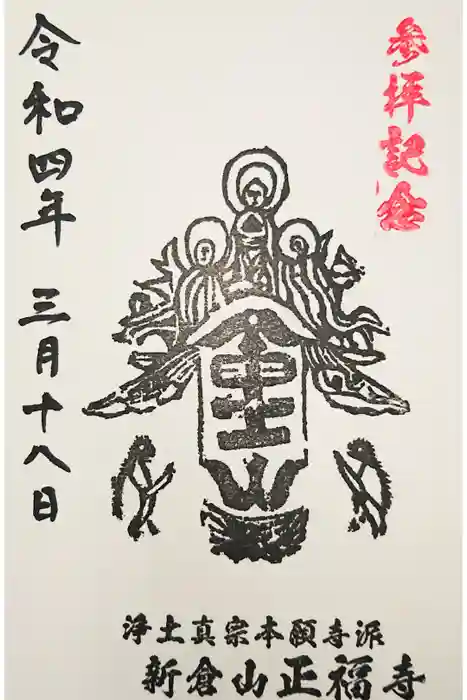 参拝記念
令和四年 三月十八日
浄土真宗本願寺派
新倉山正福寺